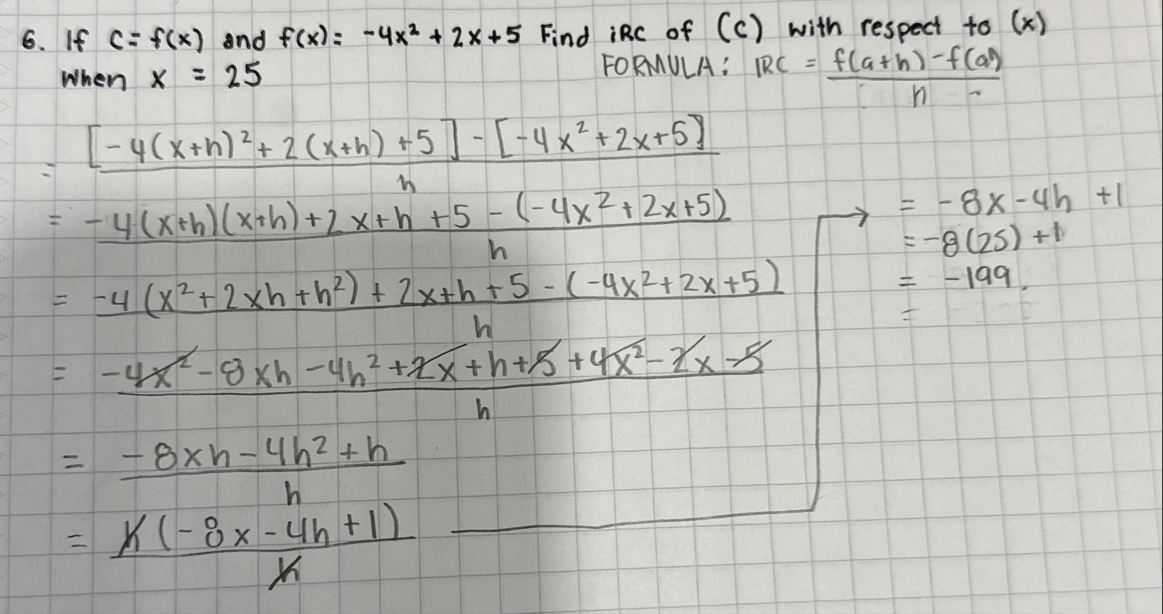 6. If C = f(x) and f(x) = -4x² + 2x + 5 Find iRC of (C) with respect to (x)
When x = 25
FORMULA: IRC = f(a+h) - f(a) / h
= [-4(x+h)² + 2(x+h) + 5] - [-4x² + 2x + 5] / h
= -4(x+h)(x+h) + 2x + h + 5 - (-4x² + 2x + 5) / h
= -4(x² + 2xh + h²) + 2x + h + 5 - (-4x² + 2x + 5) / h
= -4x² - 8xh - 4h² + 2x + h + 5 + 4x² - 2x - 5 / h
= -8xh - 4h² + h / h
= h(-8x - 4h + 1) / h
= -8x - 4h + 1
= -8(25) + 1
= -199.
=